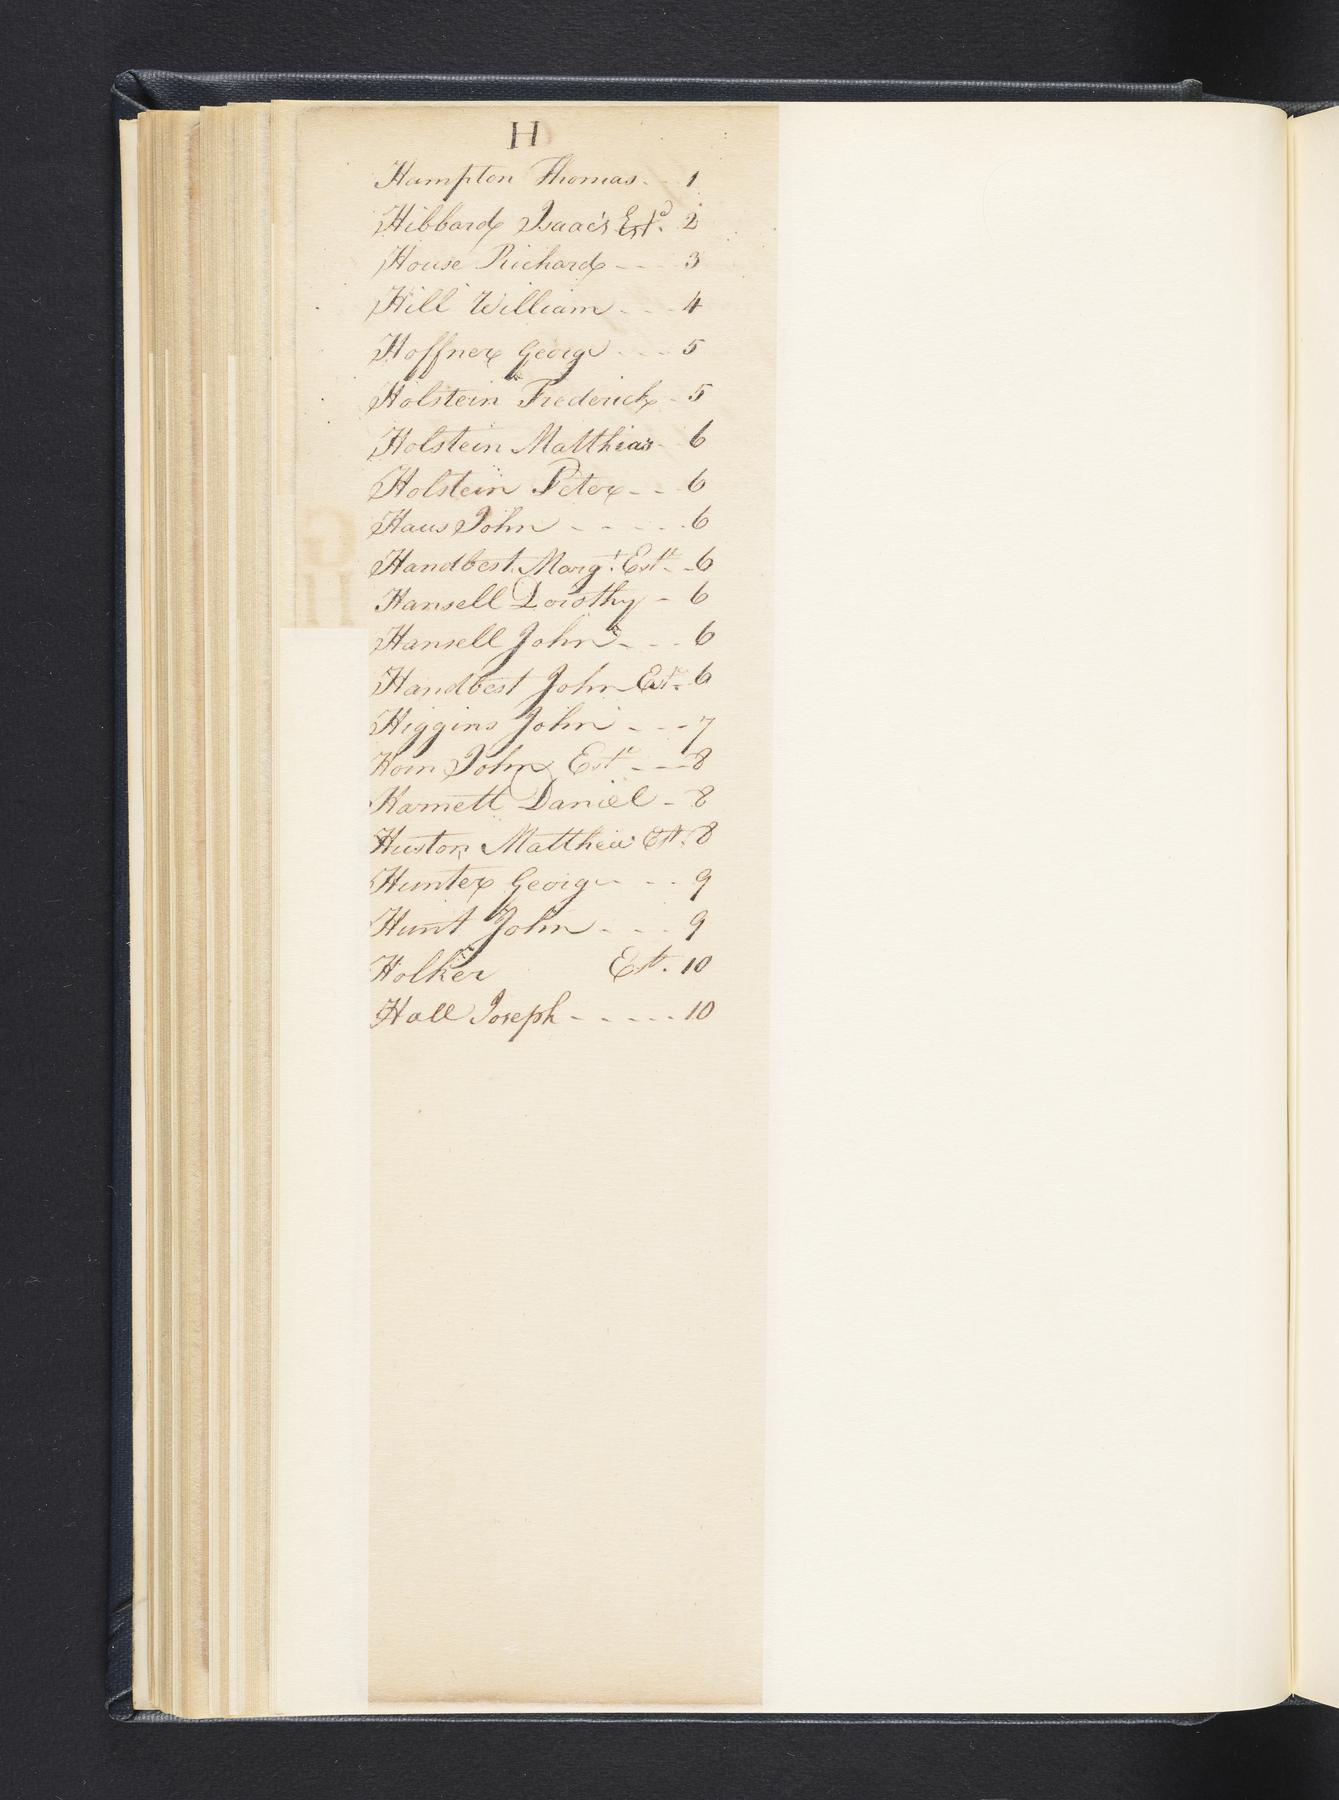 H
Hampton Thomas - - 1
Hibbard Isaac's Estd. 2
House Richard - - - 3
Hill William - - - 4
Hoffner George - - - - 5
Holstein Frederick - 5
Holstein Matthias - 6
Holstein Peter - - - 6
Haus John - - - - - 6
Handbest Margt. Estt - - 6
Hansell Dorothy - 6
Hansell John - - - 6
Handbest John Estt. 6
Higgins John - - - 7
Horn John Estt - - - 8
Harnett Daniel - 8
Huston Matthew Est. 8
Hunter George - - - 9
Hunt John - - - 9
Holker Est. 10
Hall Joseph - - - - - 10
G
H